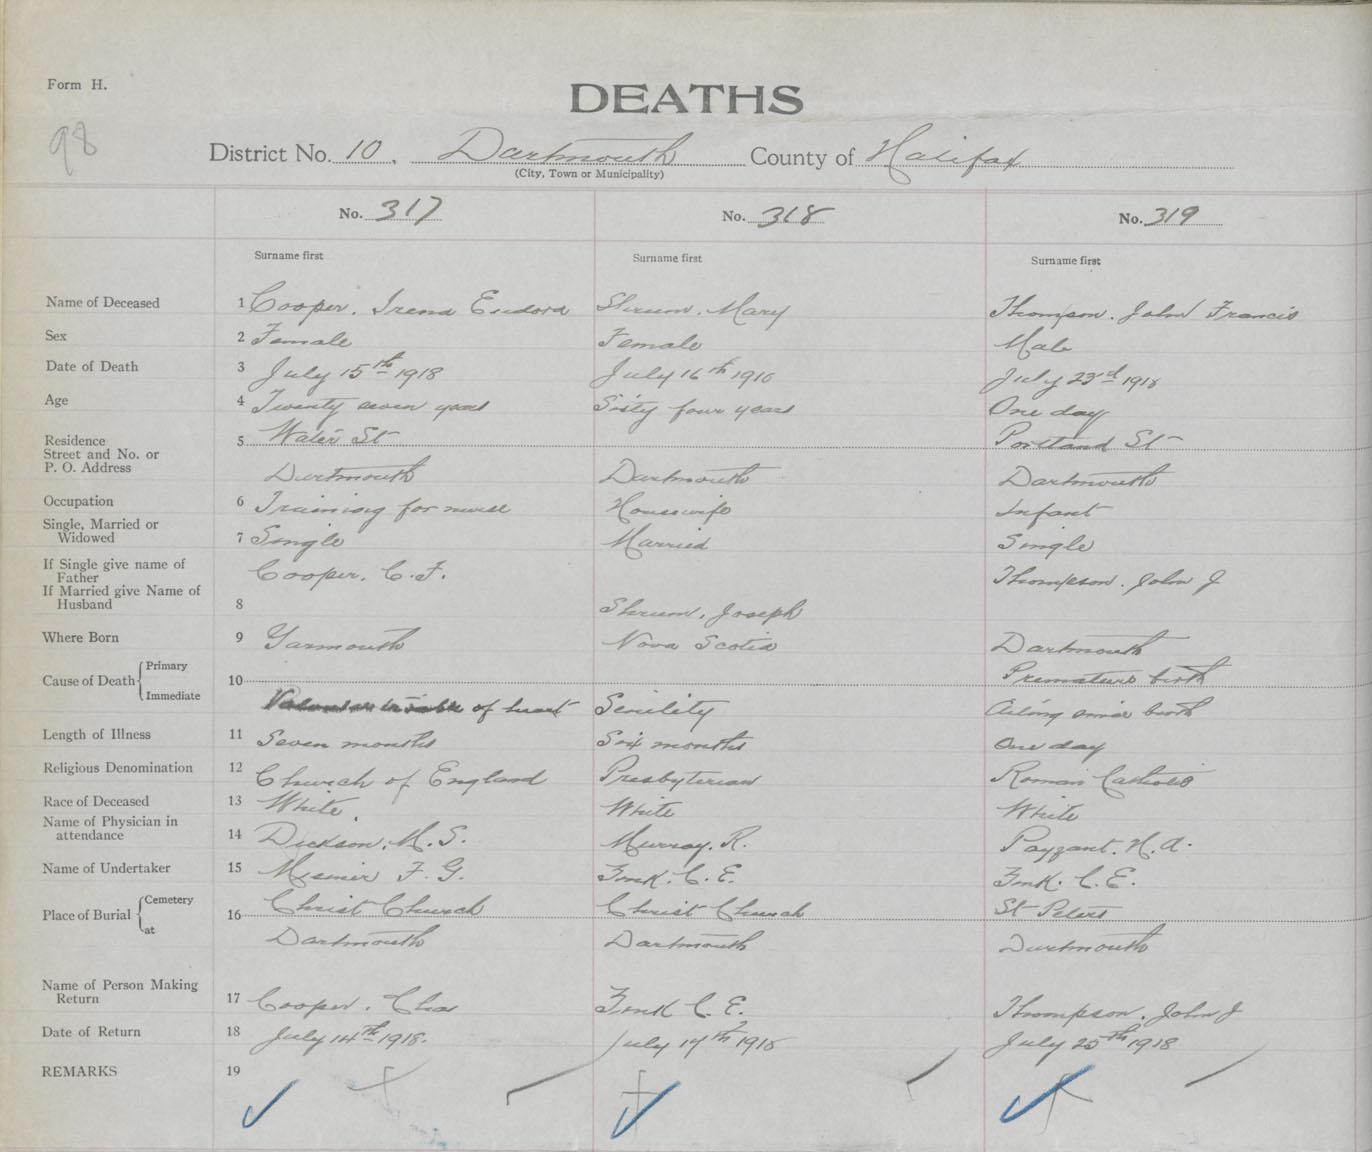 Form H.
DEATHS
98
District No. 10. Dartmouth County of Halifax
(City, Town or Municipality)
No. 317 No. 318 No. 319
Surname first Surname first Surname first
Name of Deceased 1 Cooper. Irena Eudora Shrum. Mary Thompson. John Francis
Sex 2 Female Female Male
Date of Death 3 July 15th 1918 July 16th 1918 July 23rd 1918
Age 4 Twenty seven years Sixty four years One day
Residence
Street and No. or 5 Water St Portland St
P. O. Address Dartmouth Dartmouth Dartmouth
Occupation 6 Training for nurse Housewife Infant
Single, Married or
Widowed 7 Single Married Single
If Single give name of
Father Cooper. C. F. Thompson. John J
If Married give Name of
Husband 8 Shrum. Joseph
Where Born 9 Yarmouth Nova Scotia Dartmouth
Cause of Death Primary 10 Premature birth
Immediate Valvular trouble of heart Senility Ailing since birth
Length of Illness 11 Seven months Six months One day
Religious Denomination 12 Church of England Presbyterian Roman Catholic
Race of Deceased 13 White. White White
Name of Physician in
attendance 14 Dickson. M. S. Murray. R. Payzant. H. A.
Name of Undertaker 15 Misener F. G. Zink. C. E. Zink. C. E.
Place of Burial Cemetery 16 Christ Church Christ Church St Peters
at Dartmouth Dartmouth Dartmouth
Name of Person Making
Return 17 Cooper. Chas Zink C. E. Thompson. John J
Date of Return 18 July 14th 1918. July 17th 1918 July 25th 1918
REMARKS 19